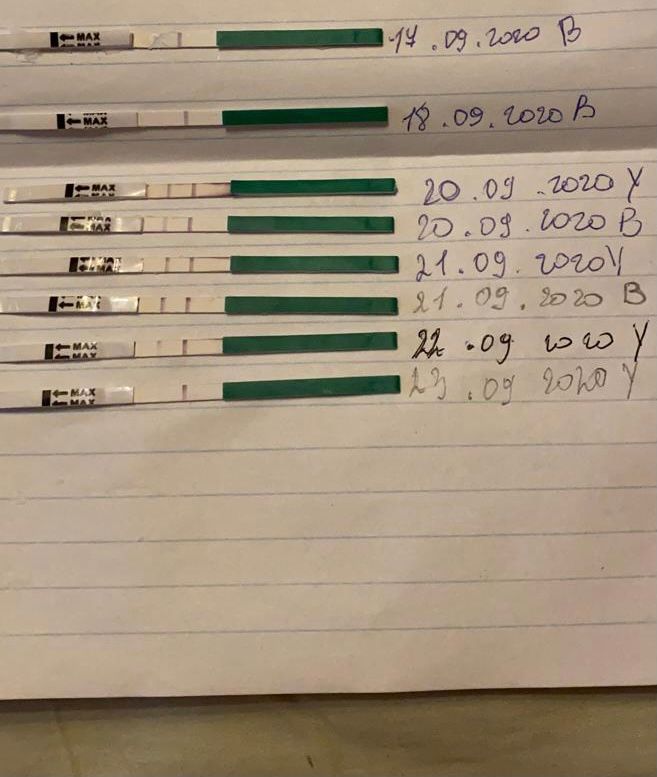 MAX 17.09.2020 В
MAX 18.09.2020 В
MAX 20.09.2020 У
MAX 20.09.2020 В
MAX 21.09.2020 У
MAX 21.09.2020 В
MAX
MAX 22.09 2020 У
MAX
MAX 23.09 2020 У